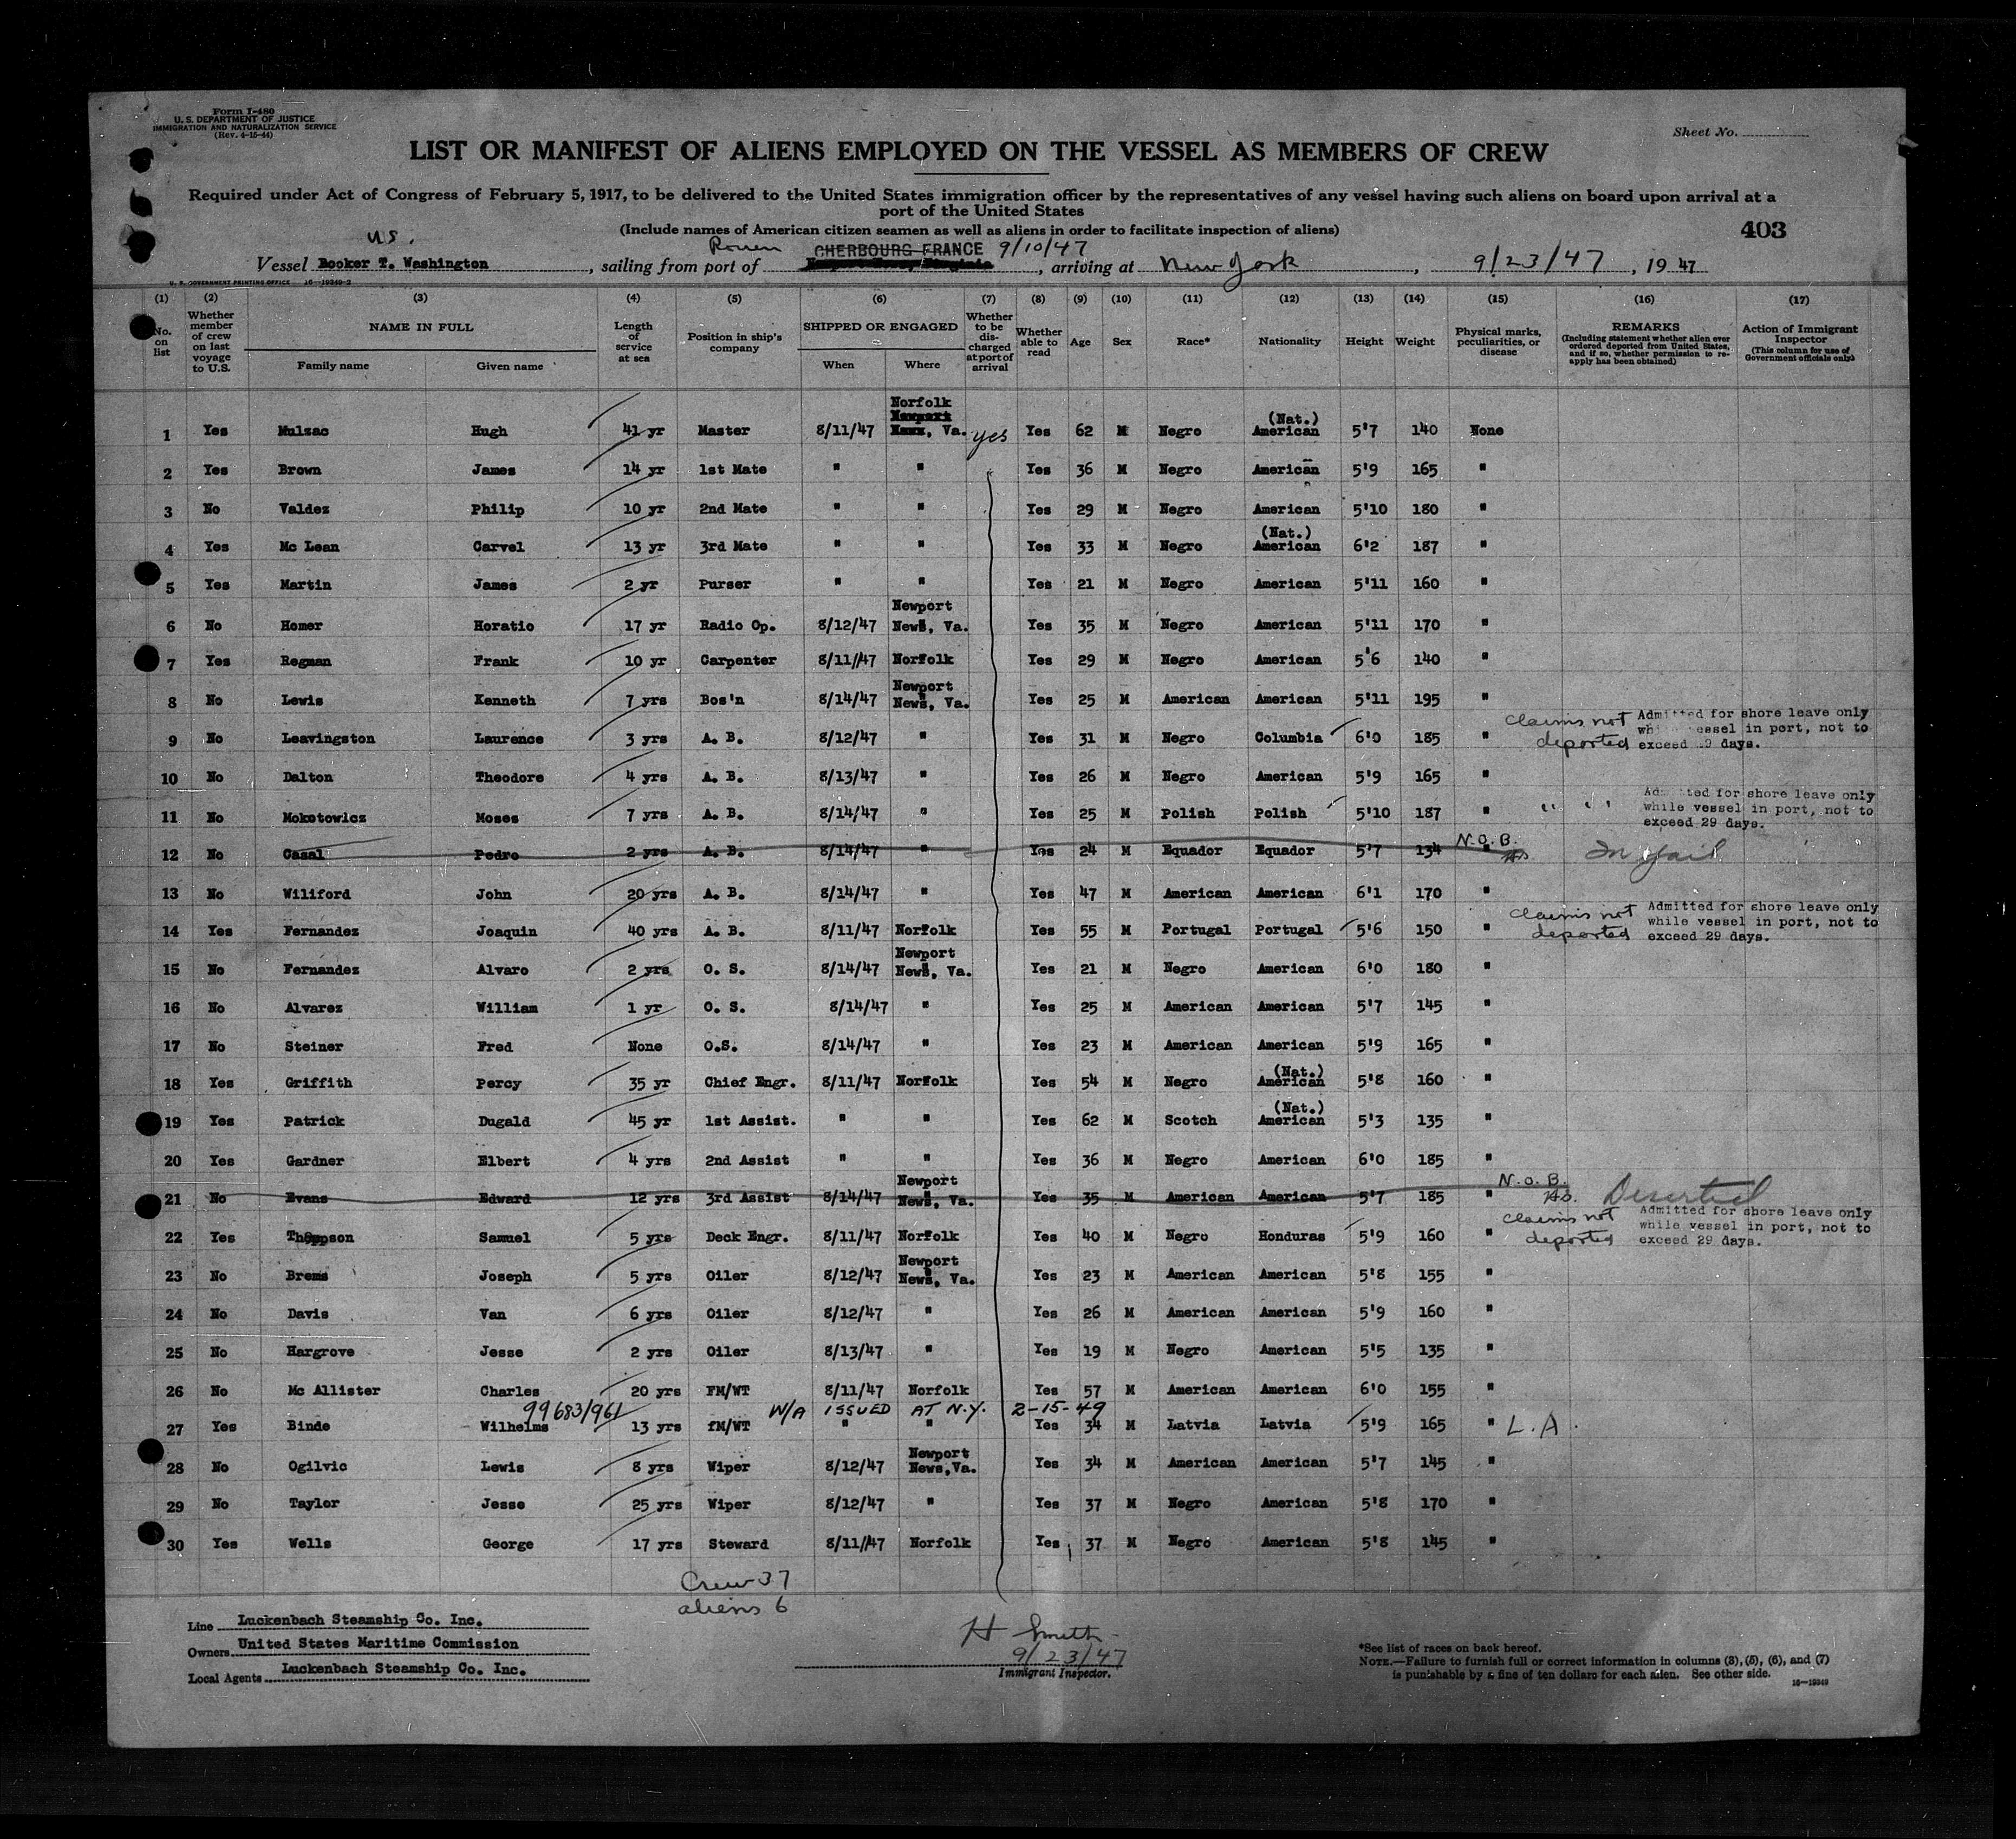 Form I-480
U. S. DEPARTMENT OF JUSTICE
IMMIGRATION AND NATURALIZATION SERVICE
(Rev. 4-15-44)
Sheet No.
LIST OR MANIFEST OF ALIENS EMPLOYED ON THE VESSEL AS MEMBERS OF CREW
Required under Act of Congress of February 5, 1917, to be delivered to the United States immigration officer by the representatives of any vessel having such aliens on board upon arrival at a
port of the United States
(Include names of American citizen seamen as well as aliens in order to facilitate inspection of aliens)
403
U.S. Rouen CHERBOURG FRANCE 9/10/47
Vessel Booker T. Washington, sailing from port of , arriving at New York, 9/23/47, 19 47
U. S. GOVERNMENT PRINTING OFFICE 16—19349-2
(1) (2) (3) (4) (5) (6) (7) (8) (9) (10) (11) (12) (13) (14) (15) (16) (17)
No. on list
Whether member of crew on last voyage to U.S.
NAME IN FULL
Family name Given name
Length of service at sea
Position in ship's company
SHIPPED OR ENGAGED
When Where
Whether to be discharged at port of arrival
Whether able to read
Age
Sex
Race*
Nationality
Height
Weight
Physical marks, peculiarities, or disease
REMARKS
(Including statement whether alien ever ordered deported from United States, and if so, whether permission to reapply has been obtained)
Action of Immigrant Inspector
(This column for use of Government officials only)
1 Yes Mulzac Hugh 41 yr Master 8/11/47 Norfolk, Va. yes Yes 62 M Negro (Nat.) American 5'7 140 None
2 Yes Brown James 14 yr 1st Mate " " Yes 36 M Negro American 5'9 165 "
3 No Valdez Philip 10 yr 2nd Mate " " Yes 29 M Negro American 5'10 180 "
4 Yes Mc Lean Carvel 13 yr 3rd Mate " " Yes 33 M Negro (Nat.) American 6'2 187 "
5 Yes Martin James 2 yr Purser " " Yes 21 M Negro American 5'11 160 "
6 No Homer Horatio 17 yr Radio Op. 8/12/47 Newport News, Va. Yes 35 M Negro American 5'11 170 "
7 Yes Regman Frank 10 yr Carpenter 8/11/47 Norfolk Yes 29 M Negro American 5'6 140 "
8 No Lewis Kenneth 7 yrs Bos'n 8/14/47 Newport News, Va. Yes 25 M American American 5'11 195 "
9 No Leavingston Laurence 3 yrs A. B. 8/12/47 " Yes 31 M Negro Columbia 6'0 185 " claims not deported Admitted for shore leave only while vessel in port, not to exceed 29 days.
10 No Dalton Theodore 4 yrs A. B. 8/13/47 " Yes 26 M Negro American 5'9 165 "
11 No Mokotowicz Moses 7 yrs A. B. 8/14/47 " Yes 25 M Polish Polish 5'10 187 " " " Admitted for shore leave only while vessel in port, not to exceed 29 days.
12 No Casal Pedro 2 yrs A. B. 8/14/47 " Yes 24 M Equador Equador 5'7 134 " N.O.B. HS In jail
13 No Wiliford John 20 yrs A. B. 8/14/47 " Yes 47 M American American 6'1 170 "
14 Yes Fernandez Joaquin 40 yrs A. B. 8/11/47 Norfolk Yes 55 M Portugal Portugal 5'6 150 " claims not deported Admitted for shore leave only while vessel in port, not to exceed 29 days.
15 No Fernandez Alvaro 2 yrs O. S. 8/14/47 Newport News, Va. Yes 21 M Negro American 6'0 180 "
16 No Alvarez William 1 yr O. S. 8/14/47 " Yes 25 M American American 5'7 145 "
17 No Steiner Fred None O.S. 8/14/47 " Yes 23 M American American 5'9 165 "
18 Yes Griffith Percy 35 yr Chief Engr. 8/11/47 Norfolk Yes 54 M Negro (Nat.) American 5'8 160 "
19 Yes Patrick Dugald 45 yr 1st Assist. " " Yes 62 M Scotch (Nat.) American 5'3 135 "
20 Yes Gardner Elbert 4 yrs 2nd Assist " " Yes 36 M Negro American 6'0 185 "
21 No Evans Edward 12 yrs 3rd Assist 8/14/47 Newport News, Va. Yes 35 M American American 5'7 185 " N.O.B. HS. Deserted
22 Yes Thompson Samuel 5 yrs Deck Engr. 8/11/47 Norfolk Yes 40 M Negro Honduras 5'9 160 " claims not deported Admitted for shore leave only while vessel in port, not to exceed 29 days.
23 No Brems Joseph 5 yrs Oiler 8/12/47 Newport News, Va. Yes 23 M American American 5'8 155 "
24 No Davis Van 6 yrs Oiler 8/12/47 " Yes 26 M American American 5'9 160 "
25 No Hargrove Jesse 2 yrs Oiler 8/13/47 " Yes 19 M Negro American 5'5 135 "
26 No Mc Allister Charles 20 yrs FM/WT 8/11/47 Norfolk Yes 57 M American American 6'0 155 "
99683/961 W/A ISSUED AT N.Y. 2-15-49
27 Yes Binde Wilhelms 13 yrs fM/WT " " Yes 34 M Latvia Latvia 5'9 165 " L.A.
28 No Ogilvic Lewis 8 yrs Wiper 8/12/47 Newport News, Va. Yes 34 M American American 5'7 145 "
29 No Taylor Jesse 25 yrs Wiper 8/12/47 " Yes 37 M Negro American 5'8 170 "
30 Yes Wells George 17 yrs Steward 8/11/47 Norfolk Yes 37 M Negro American 5'8 145 "
Crew 37
aliens 6
Line Luckenbach Steamship Co. Inc.
Owners United States Maritime Commission
Local Agents Luckenbach Steamship Co. Inc.
H Smith
9/23/47
Immigrant Inspector.
*See list of races on back hereof.
NOTE.—Failure to furnish full or correct information in columns (3), (5), (6), and (7)
is punishable by a fine of ten dollars for each alien. See other side.
16—19349